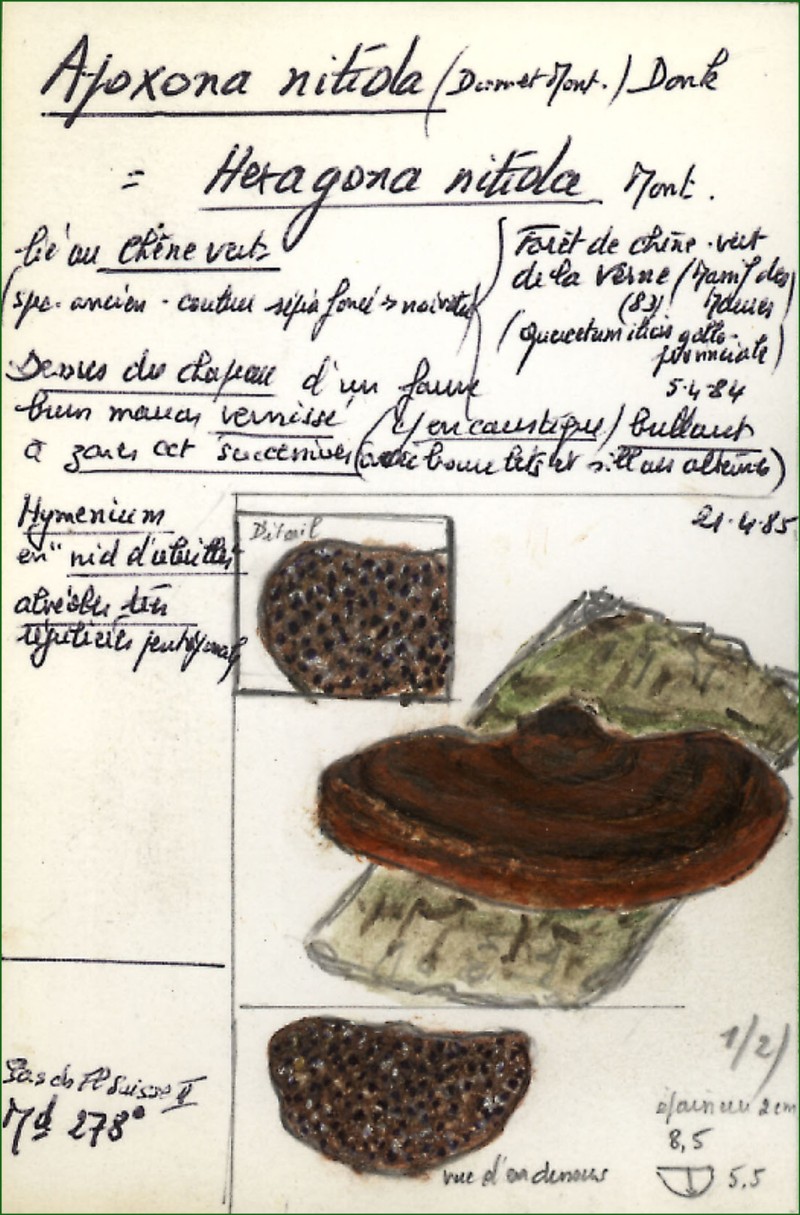 Apoxona nitida (Dur. et Mont.) Donk
= Hexagona nitida Mont.
lié au Chêne vert
(spé. ancien - couleur sépia foncé > noirâtre
Forêt de chêne-vert
de la Verne (Massif des
(83) Maures
(Quercetum ilicis gallo-
provinciale)
5-4-84
Dessus du chapeau d'un fauve
brun vernissé (d'encaustique) brillant
à zones successives (avec bourrelets et sillons alternés)
21-4-85
Hymenium
en "nid d'abeilles"
alvéoles très
régulières pentagonal
Détail
1/2)
épaisseur 2 cm
8,5
5.5
vue d'en dessous
Suisse II
Md 278°